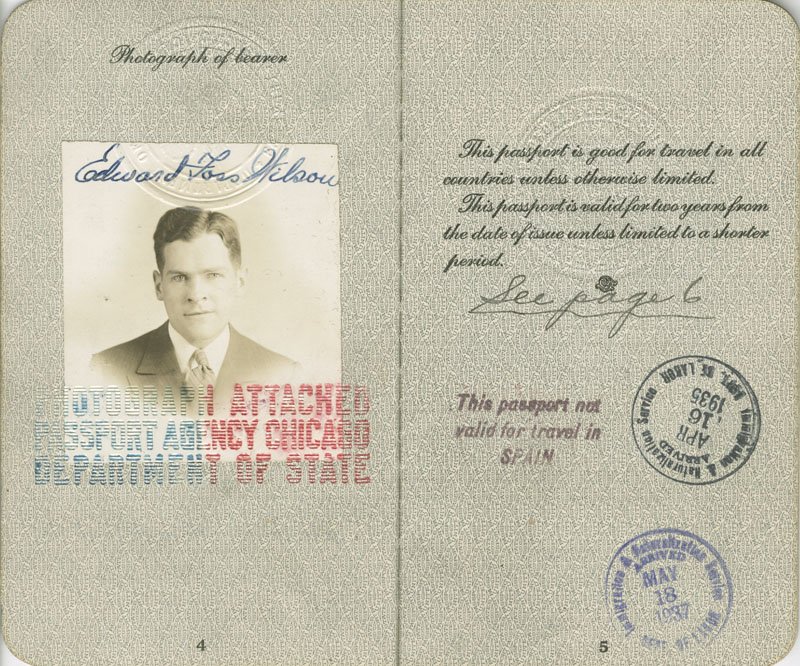 Photograph of bearer
Edward Foss Wilson
PHOTOGRAPH ATTACHED
PASSPORT AGENCY CHICAGO
DEPARTMENT OF STATE
4
This passport is good for travel in all
countries unless otherwise limited.
This passport is valid for two years from
the date of issue unless limited to a shorter
period.
See page 6
This passport not
valid for travel in
SPAIN
Immigration & Naturalization Service
ARRIVED
APR
16
1935
DEPT. OF LABOR
Immigration & Naturalization Service
ARRIVED
MAY
18
1937
DEPT OF LABOR
5